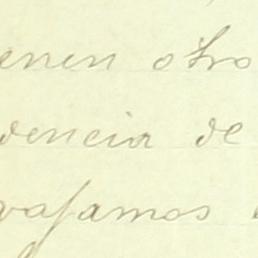 enen otro
dencia de
vajamos